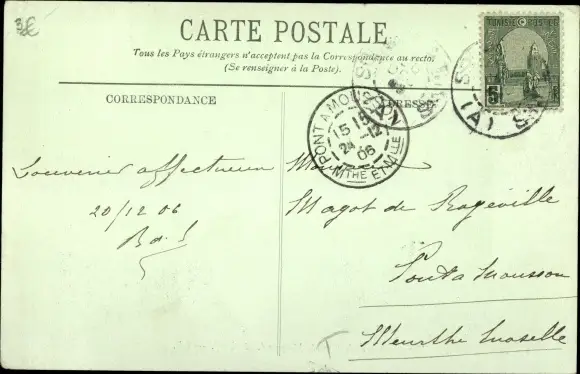 3€
CARTE POSTALE
Tous les Pays étrangers n'acceptent pas la Correspondance au recto.
(Se renseigner à la Poste).
CORRESPONDANCE
ADRESSE
TUNISIE POSTES
5
PONT A MOUSSON
15 15
24 -12
06
MTHE ET MLLE
Souvenir affectueux
20/12 06
Monsieur
Magot de Rogéville
Pont à Mousson
Meurthe Moselle